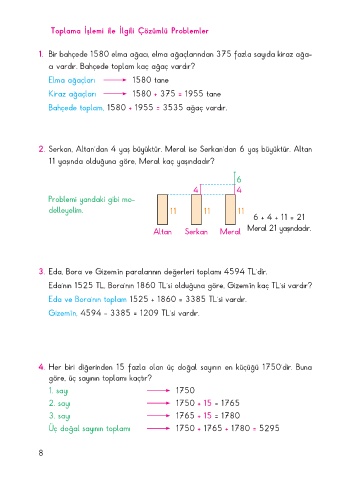 Toplama İşlemi ile İlgili Çözümlü Problemler
1. Bir bahçede 1580 elma ağacı, elma ağaçlarından 375 fazla sayıda kiraz ağa-
cı vardır. Bahçede toplam kaç ağaç vardır?
Elma ağaçları → 1580 tane
Kiraz ağaçları → 1580 + 375 = 1955 tane
Bahçede toplam, 1580 + 1955 = 3535 ağaç vardır.
2. Serkan, Altan'dan 4 yaş büyüktür. Meral ise Serkan'dan 6 yaş büyüktür. Altan
11 yaşında olduğuna göre, Meral kaç yaşındadır?
Problemi yandaki gibi mo-
delleyelim.
6
4 4
11 11 11
6 + 4 + 11 = 21
Altan Serkan Meral
Meral 21 yaşındadır.
3. Eda, Bora ve Gizem'in paralarının değerleri toplamı 4594 TL'dir.
Eda'nın 1525 TL, Bora'nın 1860 TL'si olduğuna göre, Gizem'in kaç TL'si vardır?
Eda ve Bora'nın toplam 1525 + 1860 = 3385 TL'si vardır.
Gizem'in, 4594 - 3385 = 1209 TL'si vardır.
4. Her biri diğerinden 15 fazla olan üç doğal sayının en küçüğü 1750'dir. Buna
göre, üç sayının toplamı kaçtır?
1. sayı → 1750
2. sayı → 1750 + 15 = 1765
3. sayı → 1765 + 15 = 1780
Üç doğal sayının toplamı → 1750 + 1765 + 1780 = 5295
8